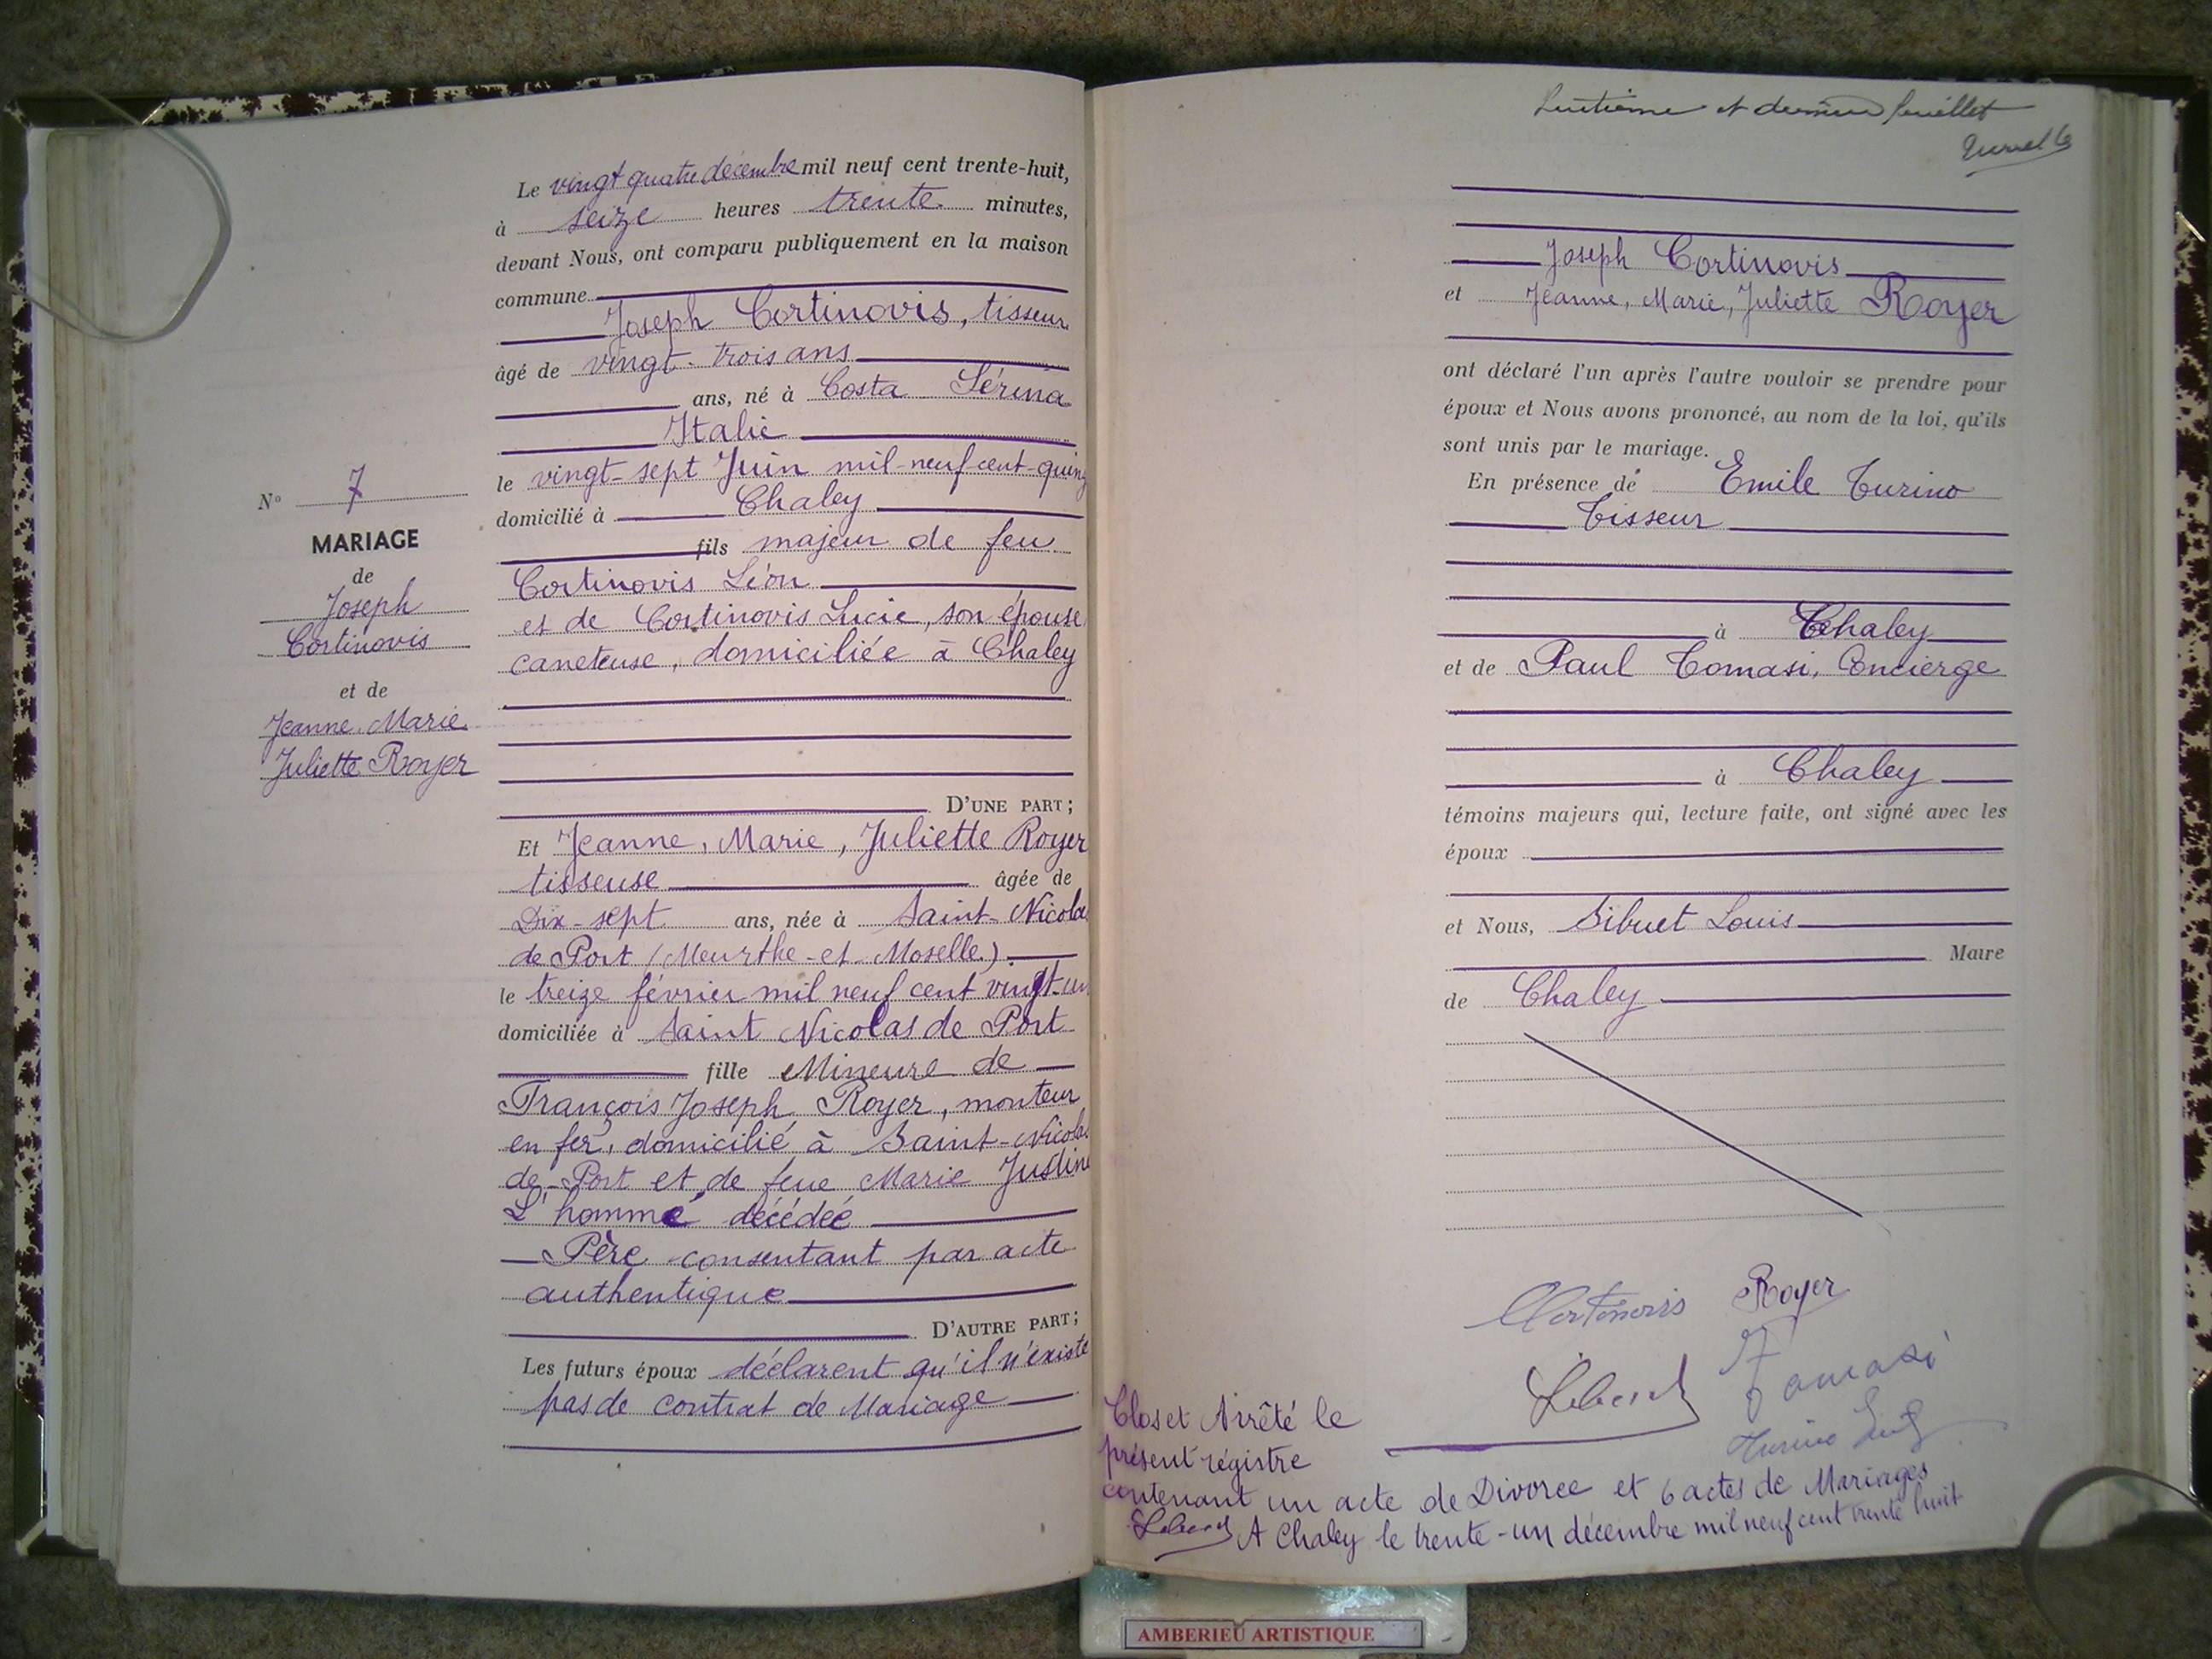 N° 7
MARIAGE
de
Joseph
Cortinovis
et de
Jeanne, Marie
Juliette Royer
Le vingt quatre décembre mil neuf cent trente-huit,
à seize heures trente minutes,
devant Nous, ont comparu publiquement en la maison
commune
Joseph Cortinovis, tisseur
âgé de vingt-trois ans
ans, né à Costa Sérina
Italie
le vingt-sept Juin mil-neuf-cent-quinz
domicilié à Chaley
fils majeur de feu
Cortinovis Léon
et de Cortinovis Lucie, son épouse
caneteuse, domiciliée à Chaley
D'UNE PART;
Et Jeanne, Marie, Juliette Royer
tisseuse âgée de
Dix-sept ans, née à Saint-Nicolas
de Port (Meurthe-et-Moselle)
le treize février mil neuf cent vingt-un
domiciliée à Saint Nicolas de Port
fille Mineure de
François Joseph Royer, monteur
en fer, domicilié à Saint-Nicolas
de-Port et de feue Marie Justine
L'homme décédée
Père consentant par acte
authentique
D'AUTRE PART;
Les futurs époux déclarent qu'il n'existe
pas de contrat de Mariage
et dernier feuillet
Joseph Cortinovis
et Jeanne, Marie, Juliette Royer
ont déclaré l'un après l'autre vouloir se prendre pour
époux et Nous avons prononcé, au nom de la loi, qu'ils
sont unis par le mariage.
En présence de Emile Turino
Tisseur
à Chaley
et de Paul Tomasi, Concierge
à Chaley
témoins majeurs qui, lecture faite, ont signé avec les
époux
et Nous, Sibuet Louis
Maire
de Chaley
Cortinovis Royer
Sibuet Tomasi
Turino
Clos et Arrêté le
présent régistre
contenant un acte de Divorce et 6 actes de Mariages
Sibuet A Chaley le trente-un décembre mil neuf cent trente huit
AMBERIEU ARTISTIQUE